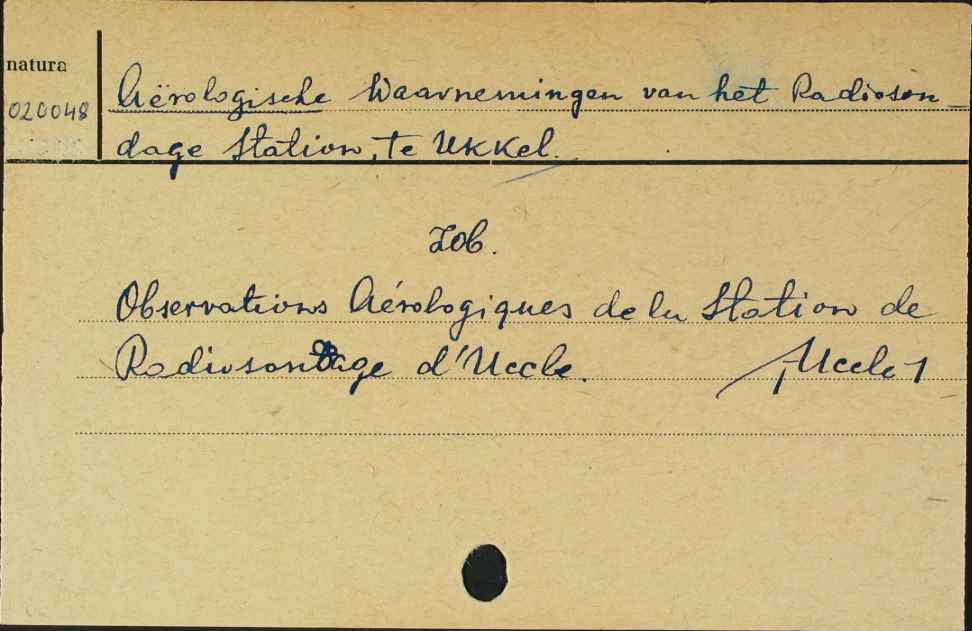 natura
020048
Aërologische Waarnemingen van het Radioson
dage Station, te Ukkel.
Zob.
Observations Aérologiques de la Station de
Radiosondage d'Uccle. Uccle 1